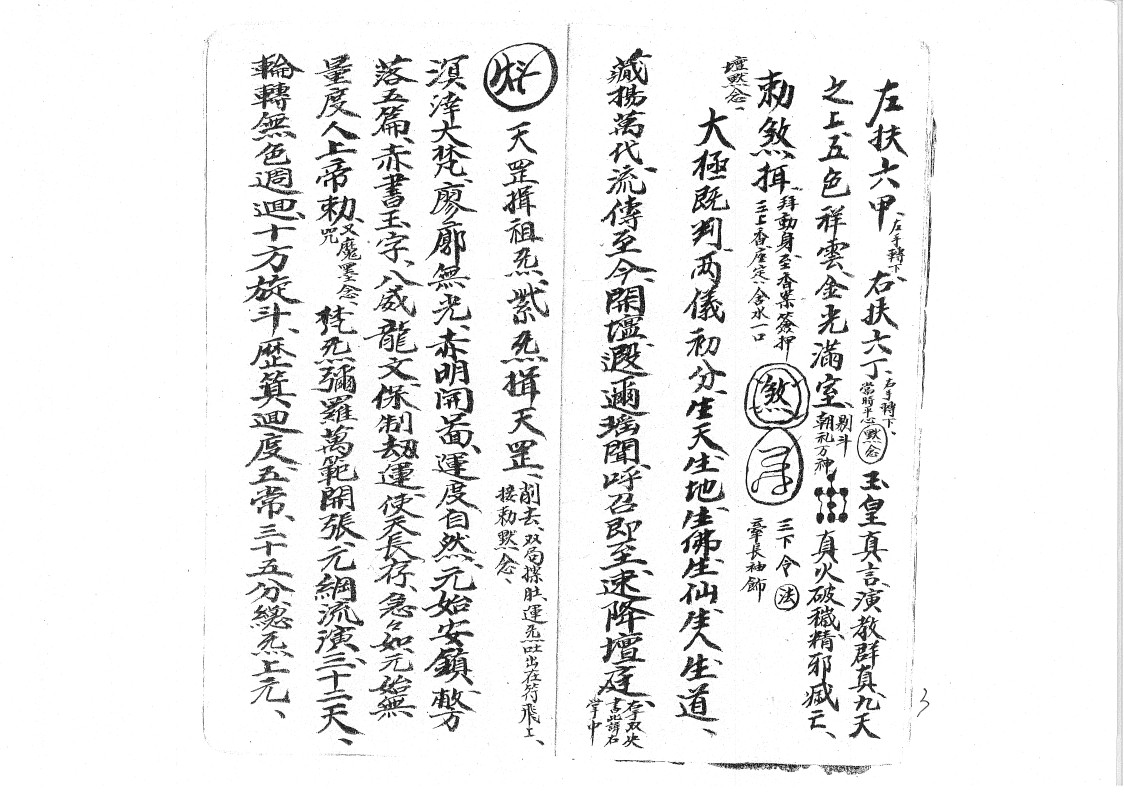 左扶六甲、左手轉下、右扶六丁、右手轉下、當時平心默念玉皇真言、演教群真、九天
之上、五色祥雲、金光滿室、剔斗朝礼万神真火破穢、精邪滅亡、
勅煞揖拜動身至香案簽押三上香座定、含水一口煞三下令法長袖飾
壇默念、
大極既判、两儀初分、生天生地、生佛生仙、生人生道、
藏揚萬代、流傳至今、開壇遐邇瑶聞、呼召即至、速降壇庭、左手双央書此諱右掌中
天罡揖祖炁、紫炁揖天罡、削去、双局探肚、運炁吐出在符飛上、接勅默念、
溟涬大梵、廖廓無光、赤明開啚、運度自然、元始安鎮、敷
落五篇、赤書玉字、八威龍文、保制刼運、使天長存、急急如元始無
量度人上帝勅、又魔墨念咒梵炁彌羅、萬範開張、元綱流演、三十二天、
輪轉無色、週迴十方、旋斗歷箕、迴度五常、三十五分、總炁上元、
3